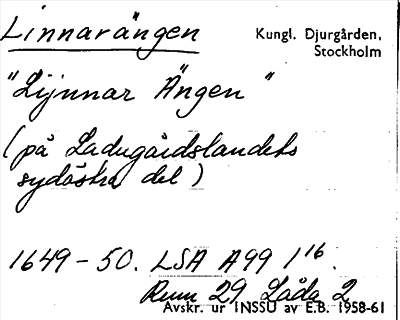 Linnarängen
Kungl. Djurgården,
Stockholm
"Lijnnar Ängen"
(på Ladugårdslandets
sydöstra del)
1649-50. LSA A99 1¹⁶.
Rum 29 Låda 2
Avskr. ur INSSU av E.B. 1958-61